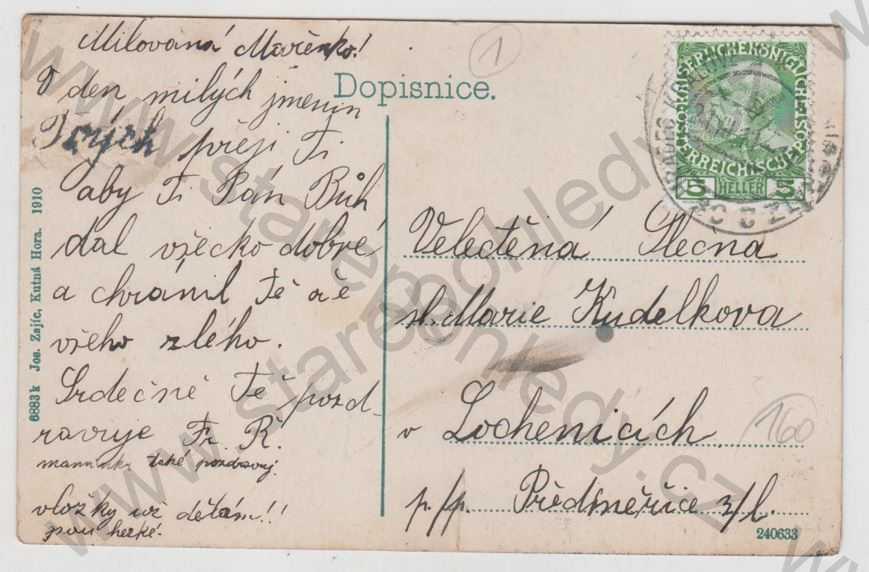 Milovaná Mařenko!
V den milých jmenin
Tvých přeji Ti
aby Ti Pán Bůh
dal všecko dobré
a chránil Tě ode
všeho zlého.
Srdečně Tě pozd-
ravuje Fr. R.
maminka také pozdravuj.
vložky už dělám!!
jsou hezké.
Dopisnice.
1
5 HELLER 5
Velectěná Slečna
sl. Marie Kudelkova
v Lochenicích
p/p. Předměřice n/l.
160
240633
6883k Jos. Zajíc, Kutná Hora. 1910
www.starepohledy.cz